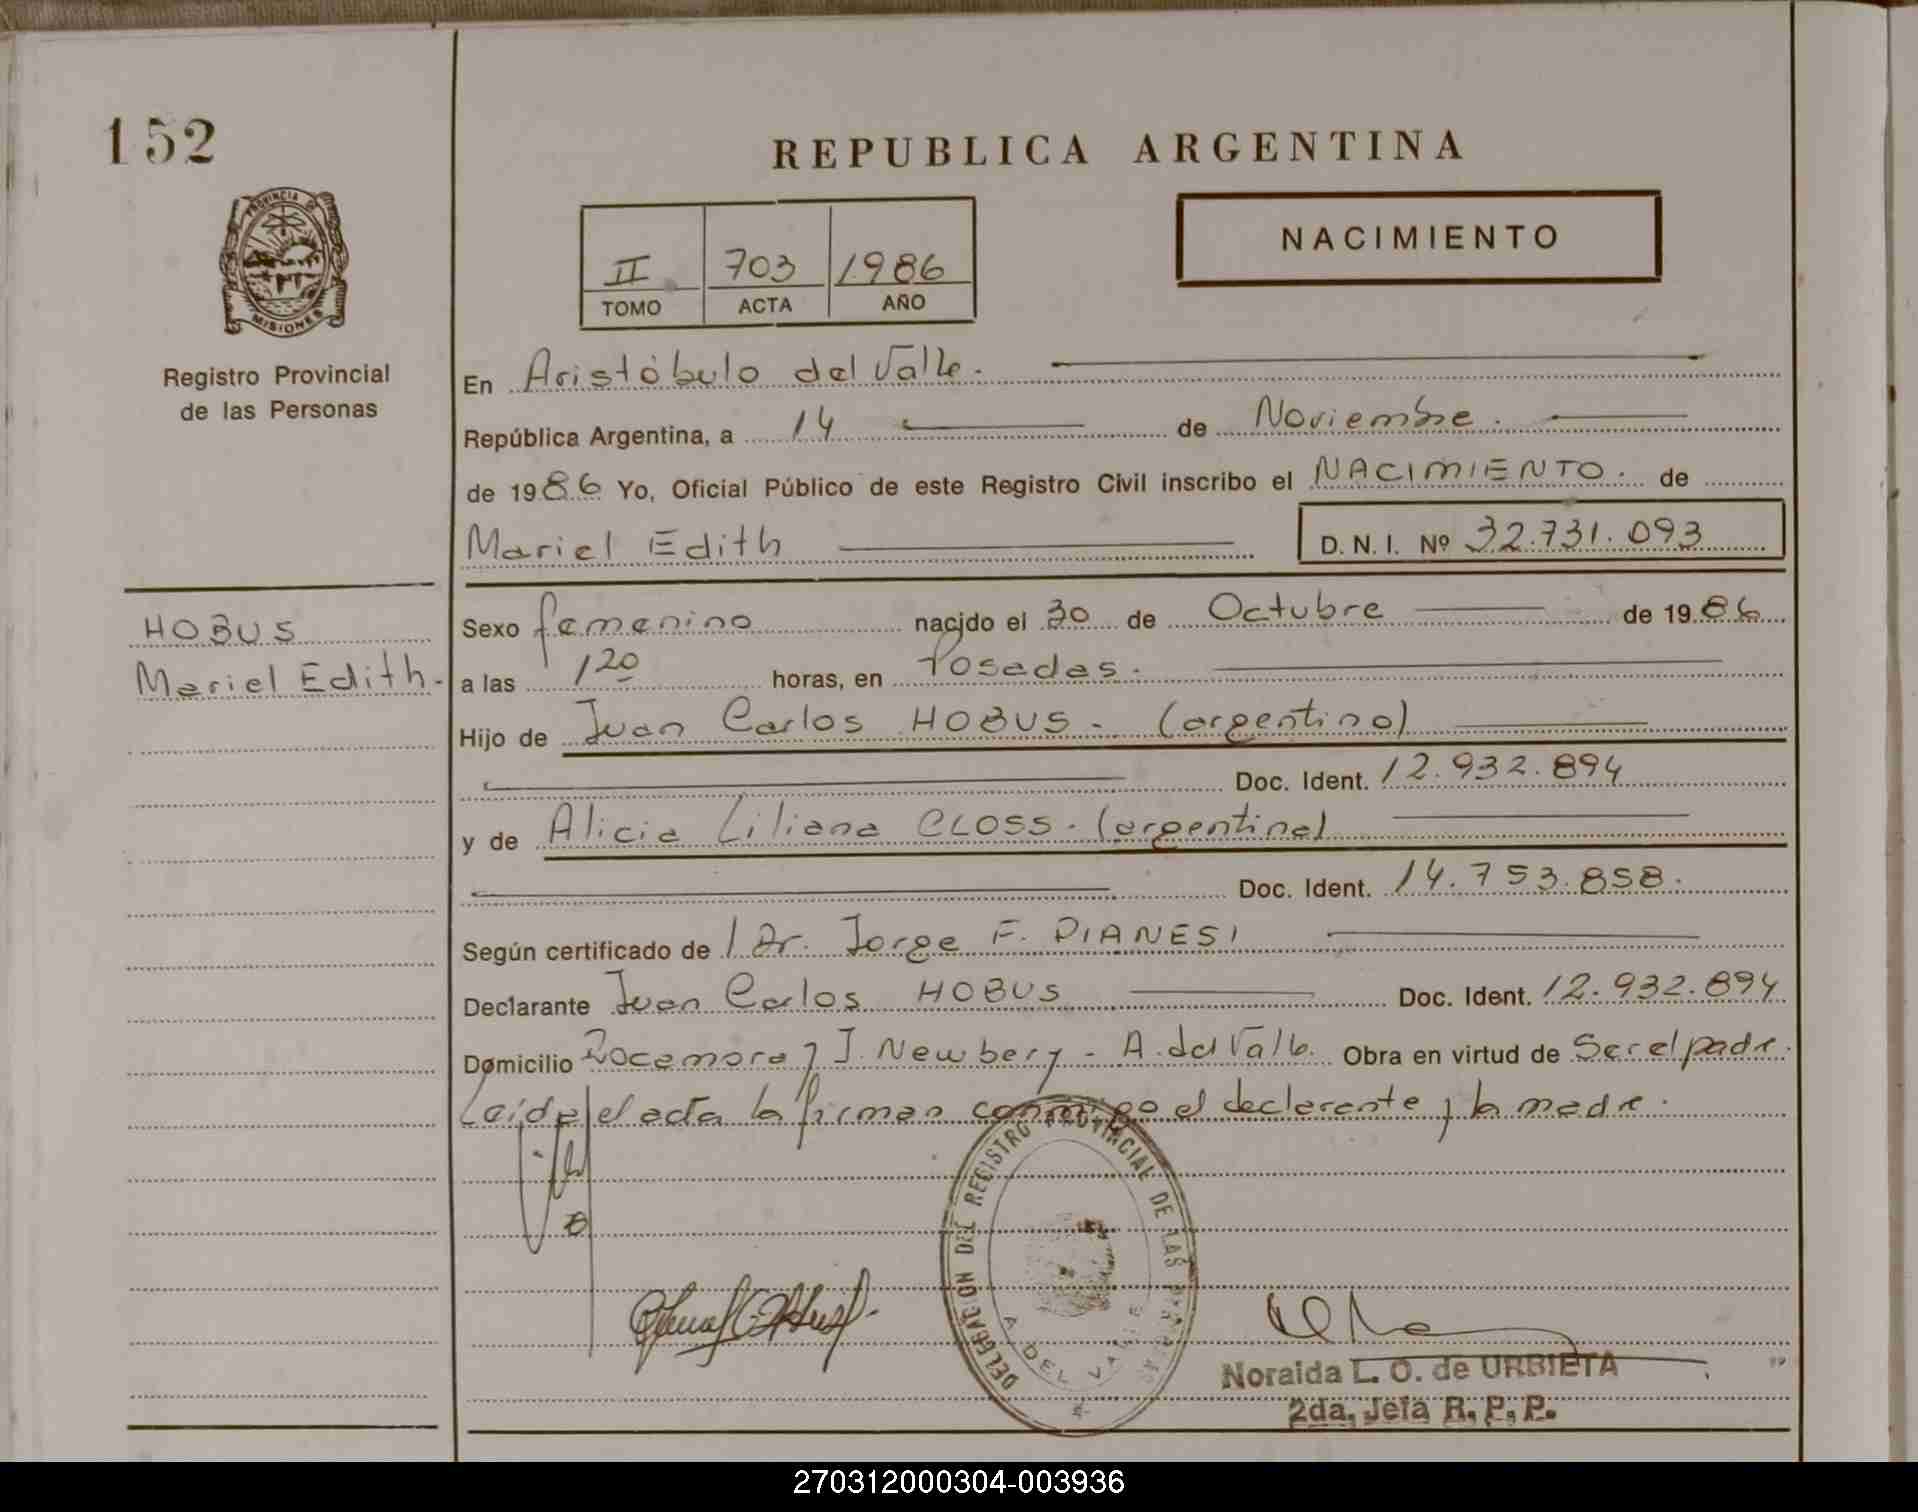 152
REPUBLICA ARGENTINA
PROVINCIA DE
MISIONES
Registro Provincial
de las Personas
II 703 1986
TOMO ACTA AÑO
NACIMIENTO
En Aristóbulo del Valle.
República Argentina, a 14 de Noviembre.
de 1986 Yo, Oficial Público de este Registro Civil inscribo el NACIMIENTO. de
Mariel Edith D. N. I. Nº 32.731.093
HOBUS
Mariel Edith.
Sexo femenino nacido el 30 de Octubre de 1986
a las 1 20 horas, en Posadas.
Hijo de Juan Carlos HOBUS. (argentino)
Doc. Ident. 12.932.894
y de Alicia Liliana CLOSS. (argentina)
Doc. Ident. 14.753.858.
Según certificado de / Dr. Jorge F. PIANESI
Declarante Juan Carlos HOBUS Doc. Ident. 12.932.894
Domicilio Rocamora y J. Newbery - A. del Valle. Obra en virtud de Ser el padre.
Leída el acta la firman conmigo el declarante y la madre.
DELEGACION DEL REGISTRO PROVINCIAL DE LAS
A. DEL VALLE
Noraida L. O. de URBIETA
2da. Jefa R. P. P.
270312000304-003936